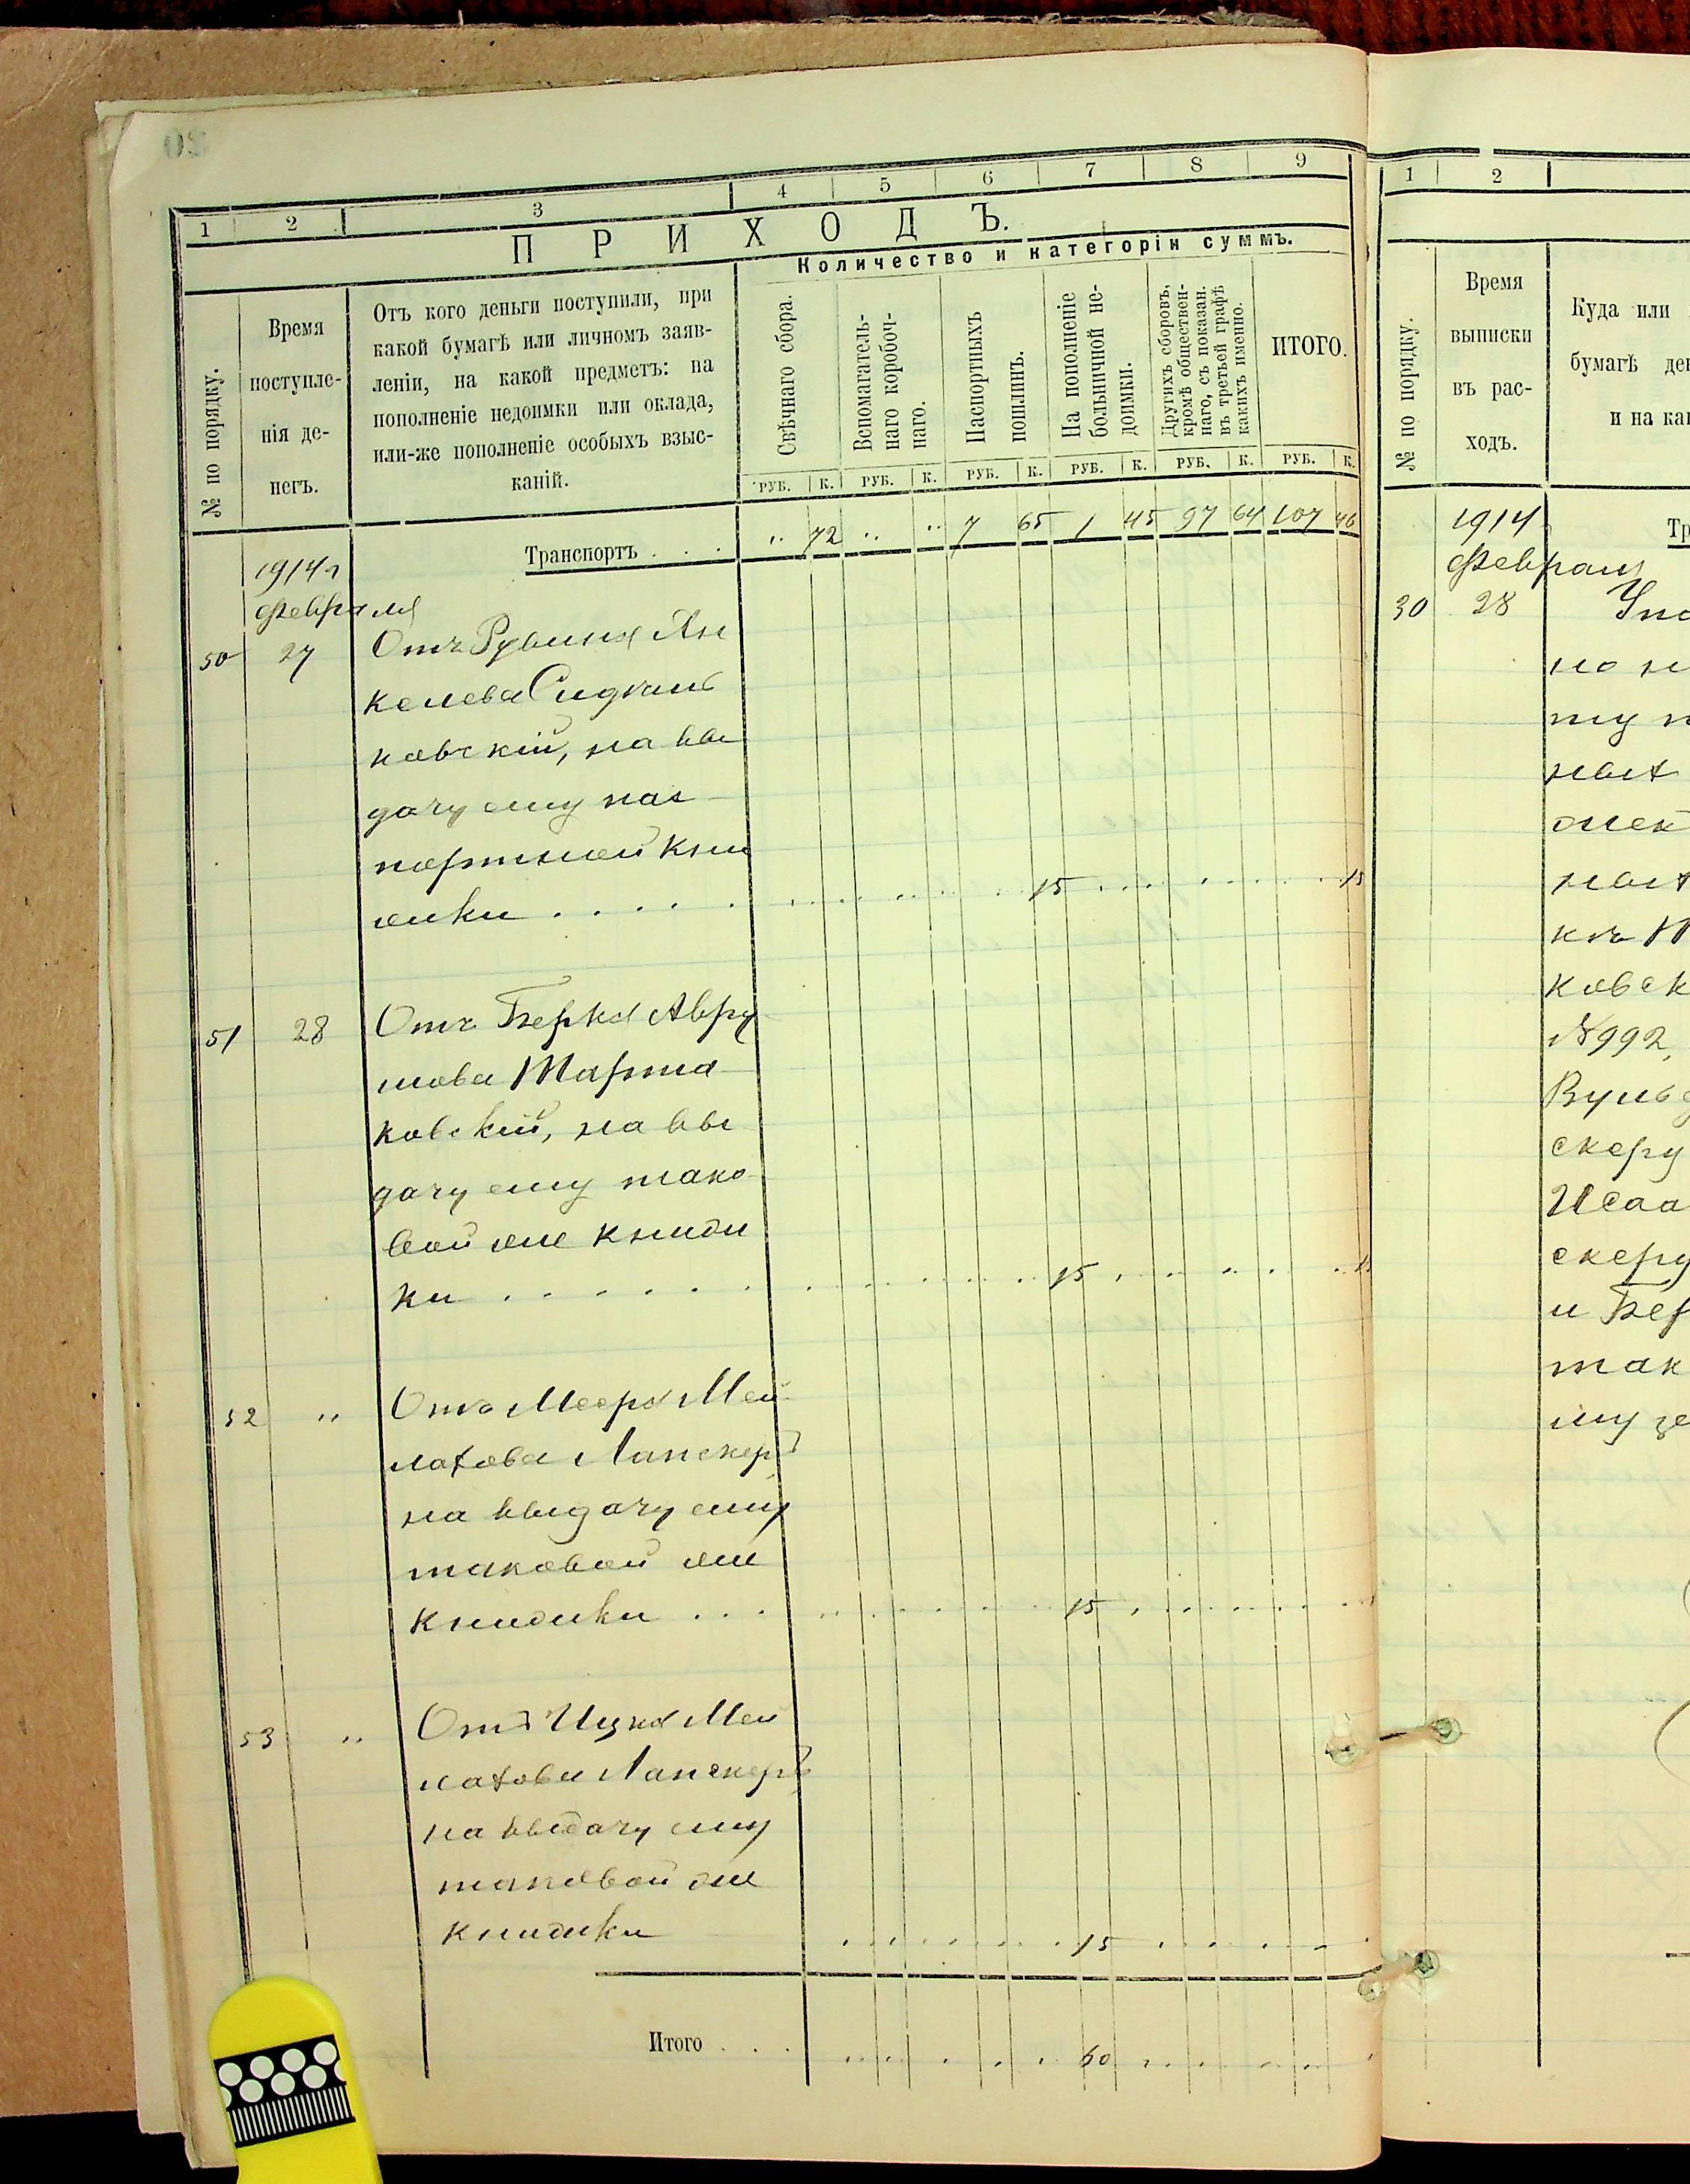 1 2 3 4 5 6 7 8 9
ПРИХОДЪ.
Количество и категоріи суммъ.
№ по порядку.
Время
поступле-
нія де-
негъ.
Отъ кого деньги поступили, при
какой бумагѣ или личномъ заяв-
леніи, на какой предметъ: на
пополненіе недоимки или оклада,
или-же пополненіе особыхъ взыс-
каній.
Свѣчнаго сбора.
Вспомагатель-
наго коробоч-
наго.
Паспортныхъ
пошлинъ.
На пополненіе
больничной не-
доимки.
Другихъ сборовъ,
кромѣ обществен-
наго, съ показан.
въ третьей графѣ
какихъ именно.
ИТОГО.
РУБ. К. РУБ. К. РУБ. К. РУБ. К. РУБ. К. РУБ. К.
Транспортъ . . . " 72 " " 7 65 1 45 97 64 107 46
1914 г
февраля
50 27 Отъ Рувина Ян
келева
ковскій, на вы
дачу ему пас
портной кни
жки . . . . . 15 15
51 28 Отъ Берка Авру
мова Марта
ковскій, на вы
дачу ему тако
вой же книж
ки . . . . . . 15
52 " Отъ Меера Мей
лахова Лапскеръ
на выдачу ему
таковой же
книжки . . . 15
53 " Отъ Ицка Мей
лахова Лапскеръ
на выдачу ему
таковой же
книжки 15
Итого . . . 60
1 2
№ по порядку.
Время
выписки
въ рас-
ходъ.
Куда или
бумагѣ
и на
1914
февраля
30 28
но н
ту п
къ
ковск
№ 992,
скеру
Исаа
скеру
и Бер
так
му